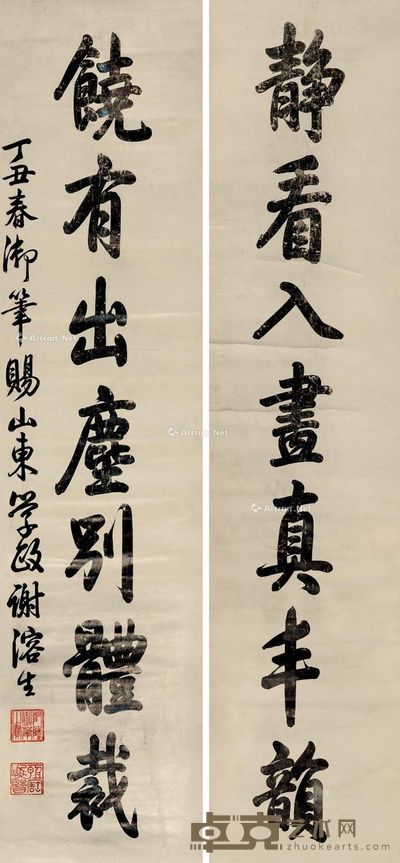 静看入畫真丰韻
饒有出塵別體裁
丁丑春御筆賜山東学政謝溶生
Artron.Net
Artron.Net
Artron.Net
Artron.Net
卓克艺术网
zhuokearts.com